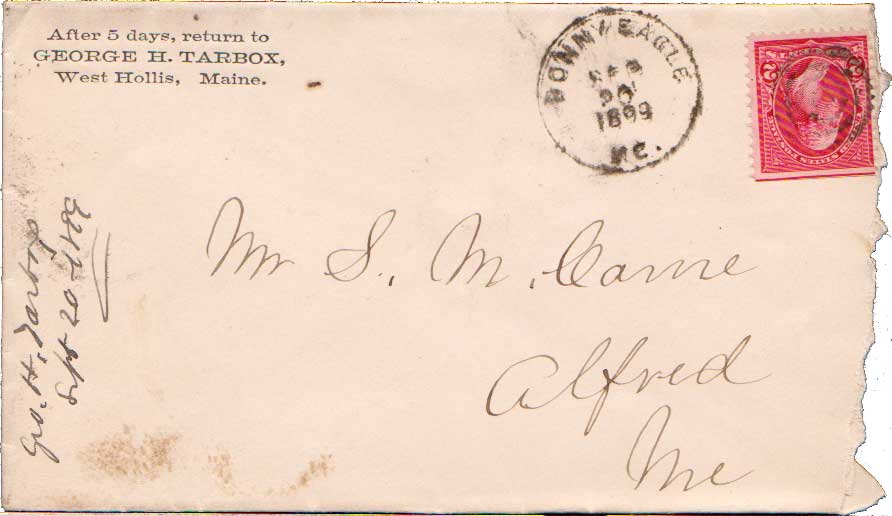 After 5 days, return to
GEORGE H. TARBOX,
West Hollis, Maine.
BONNY EAGLE
SEP
20
1899
ME.
2 2
UNITED STATES POSTAGE
Mr S. M. Came
Alfred
Me
Geo. H. Tarbox
Sept 20-1899